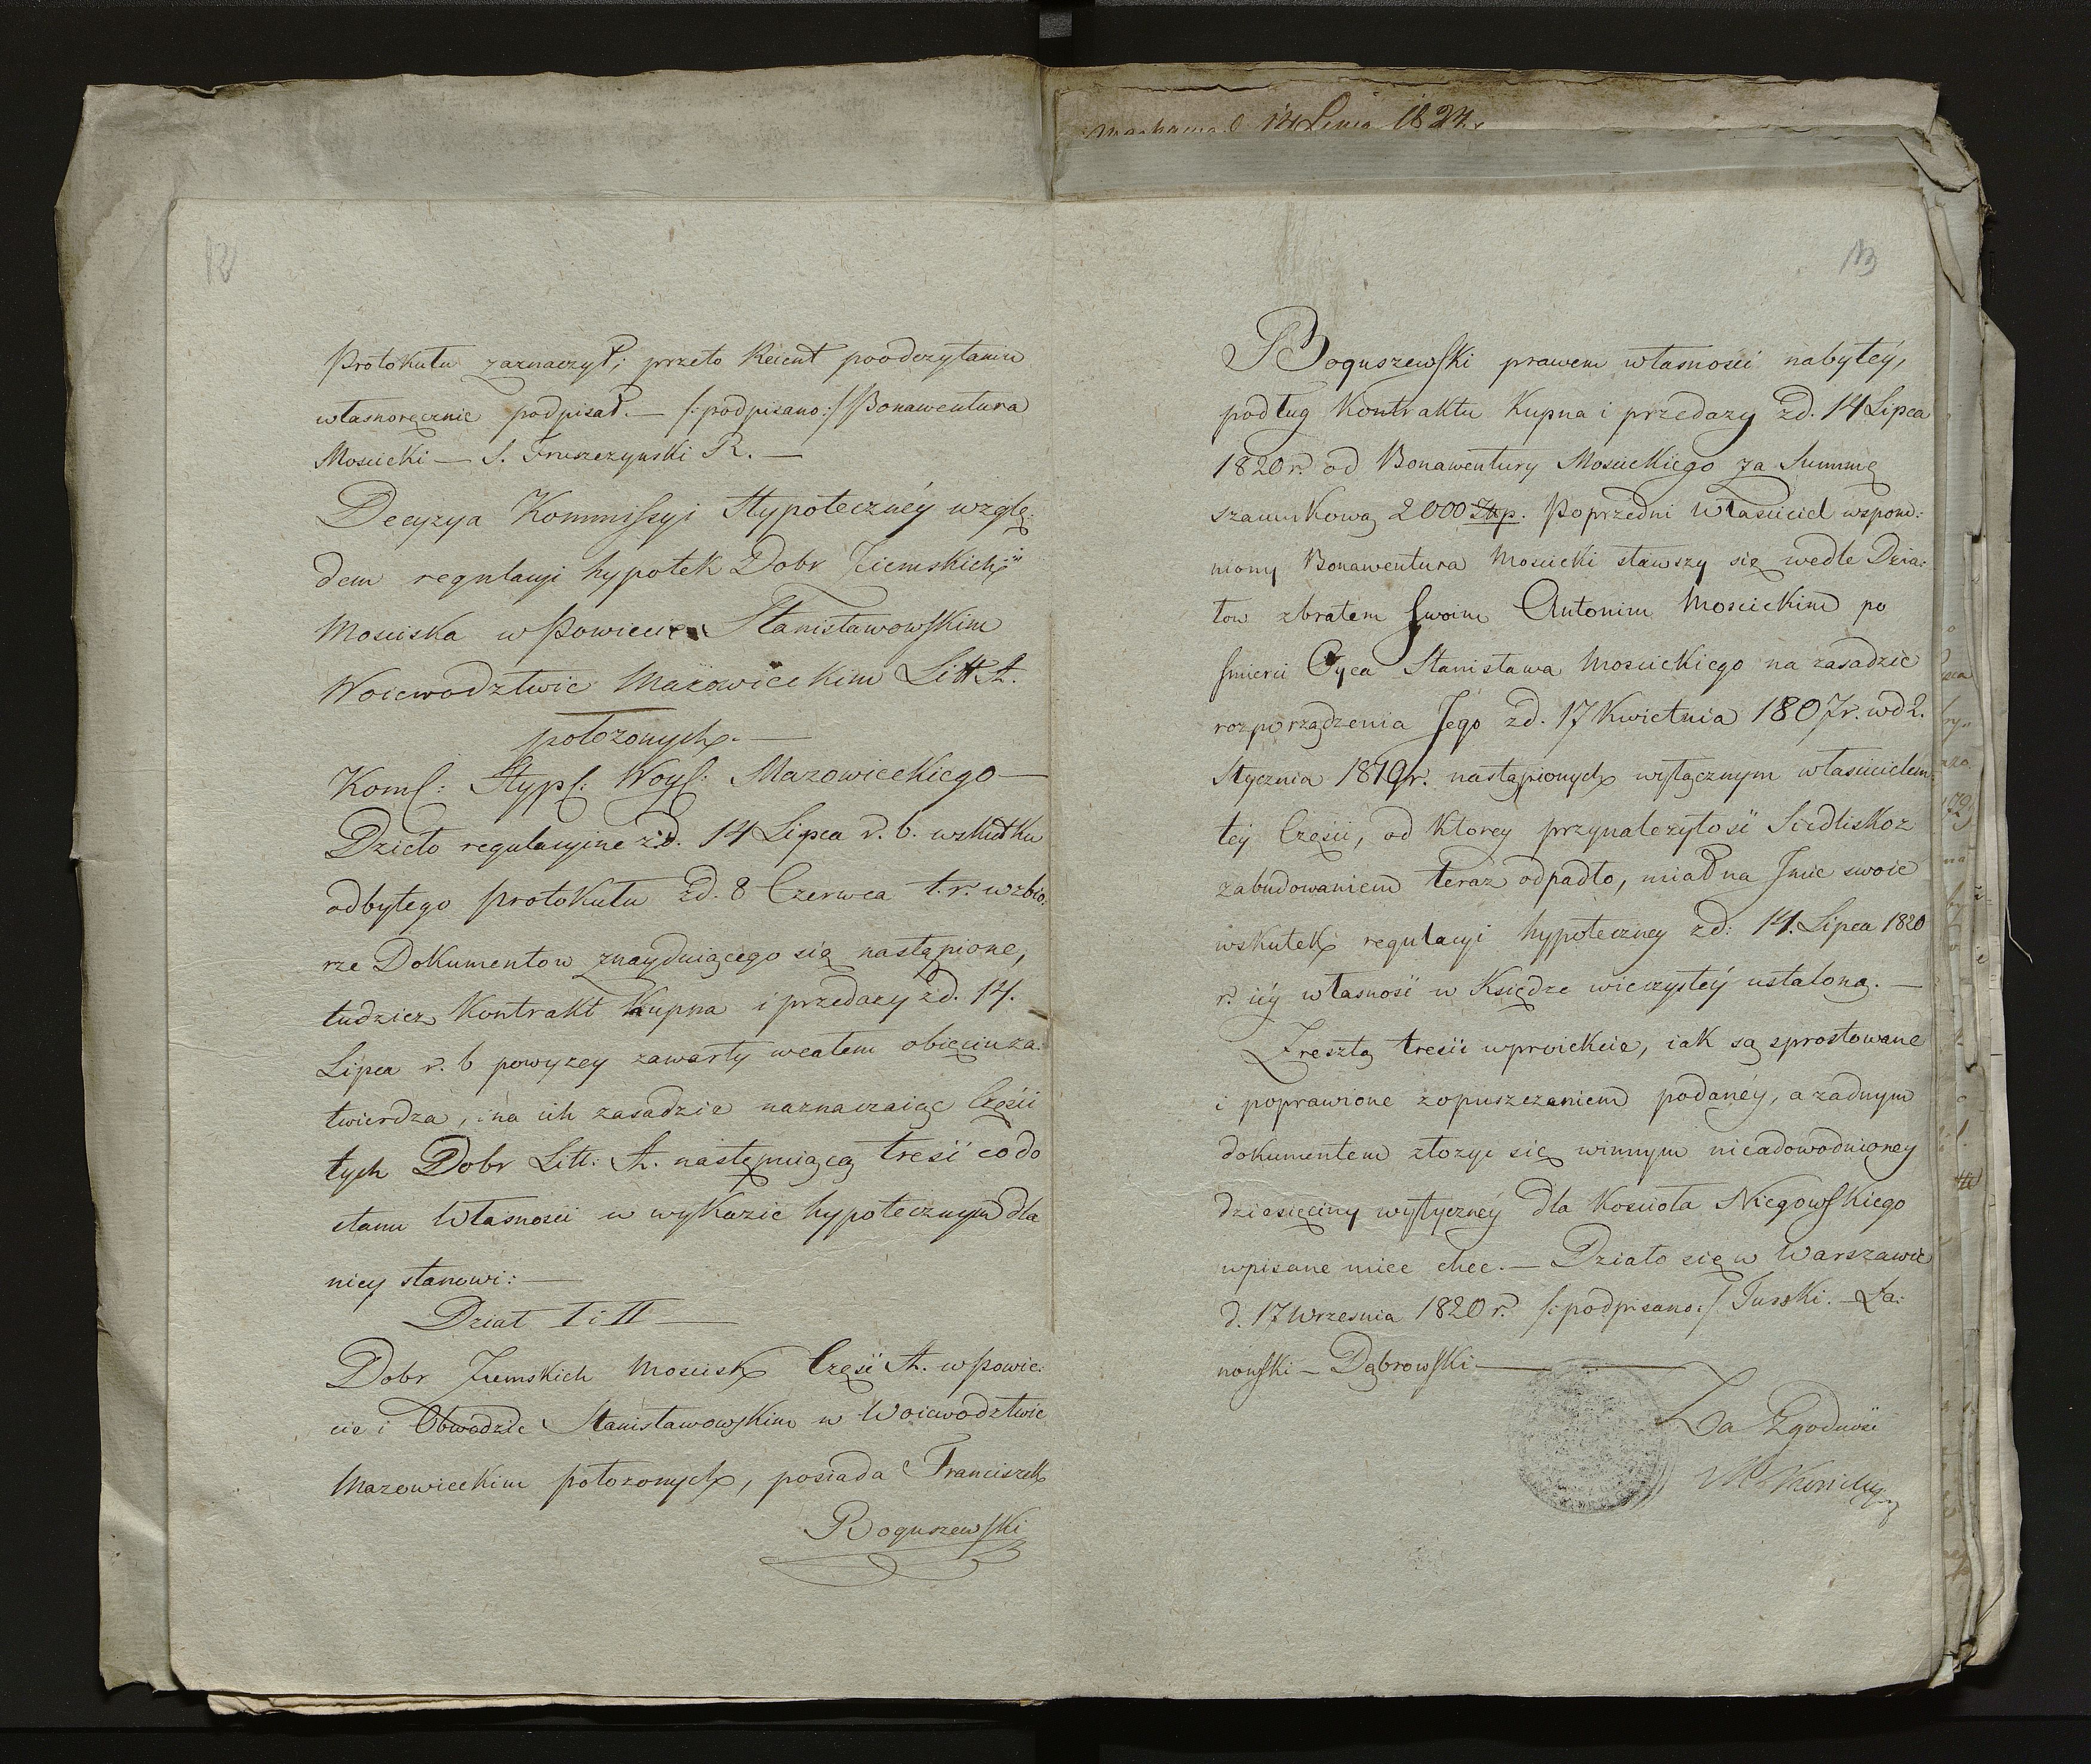 12
Protokułu zaznaczył; przeto Reient poodczytaniu
własnoręcznie podpisał. — /:podpisano:/ Bonawentura
Moscicki — J. Truszczynski R. —
Decyzya Kommissyi Hypoteczney wzglę:
dem regulacyi hypotek Dobr Ziemskich
Mosciska w Powiecie Stanisławowskim
Woiewodztwie Mazowieckim Litt A.
położonych. —
Koms: Hyps: Woys: Mazowieckiego —
Dzieło regulacyine zd. 14 Lipca r. b. wskutku
odbytego protokułu zd. 8 Czerwca t. r. wzbio:
rze Dokumentow znayduiącego się nastąpione,
tudziez Kontrakt Kupna i przedazy zd. 14.
Lipca r. b powyzey zawarty wcałem obięciu za:
twierdza, i na ich zasadzie naznaczaiąc Części
tych Dobr Litt: A. następuiącą treść co do
stanu Własnosci w wykazie hypotecznym dla
niey stanowi: —
Dział I i II —
Dobr Ziemskich Moscisk Część A. w Powie:
cie i Obwodzie Stanisławowskim w Woiewodztwie
Mazowieckim położonych, posiada Franciszek
Boguszewski
14 1824.
13
Boguszewski prawem własnosci nabytey,
podług Kontraktu Kupna i przedazy zd. 14 Lipca
1820 r. od Bonawentury Moscickiego za Summę
szacunkową 2000 Złp. Poprzedni Właściciel wspom:
niony Bonawentura Moscicki stawszy się wedle Dzia:
łow z bratem swoim Antonim Moscickim po
smierci Oyca Stanisława Moscickiego na zasadzie
rozporządzenia Jego zd. 17 Kwietnia 1807 r. w d 2.
Stycznia 1819 r. nastąpionych wyłącznym właścicielem
tey Części, od ktorey przynalezytość Siedliskoz
zabudowaniem teraz odpadło, miał na Imie swoie
wskutek regulacyi hypoteczney zd: 14. Lipca 1820
r. iey własność w Księdze wieczystey ustaloną. —
Zresztą treści wproiekcie, iak są sprostowane
i poprawione zopuszczeniem podaney, a zadnym
dokumentem złozyć się winnym nieudowodnioney
dziesięciny wytyczney dla Kościoła Niegowskiego
wpisane miec chce. — Działo się w Warszawie
d. 17 Wrzesnia 1820 r. /:podpisano:/ Turski. — Ła:
nowski — Dąbrowski —
Za Zgodność